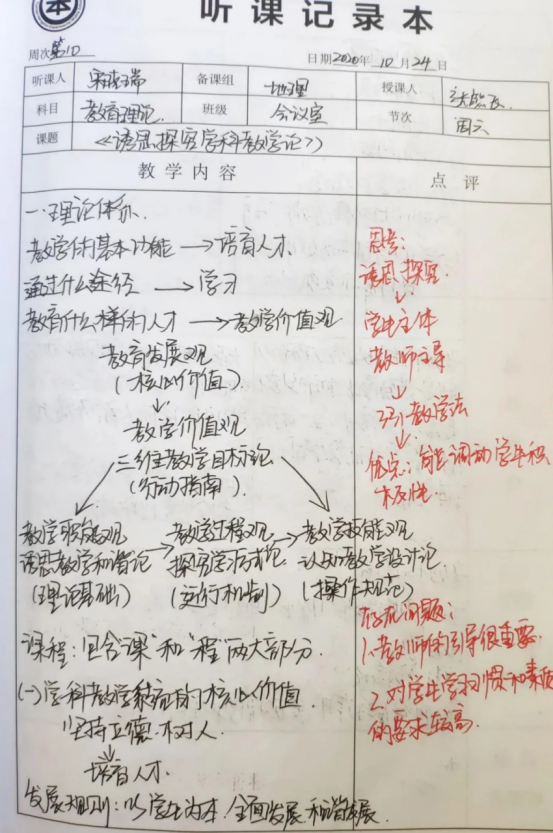 本
听课记录本
周次 第10 日期 2020年 10月24日
听课人 备课组 地理 授课人
科目 教育理论 班级 会议室 节次 周六
课题 《诱思探究学科教学论》
教学内容 点评
一、理论体系.
教学的基本功能→培育人才.
通过什么途径→学习
教育什么样的人才→教学价值观
教育发展观
(核心价值)
↓
教学价值观
三维教学目标论
(行动指南).
教学职能观 教学过程观 教学技能观
诱思教学和谐论→探究学习方式论→认知教学设计论
(理论基础) (运行机制) (操作规范)
课程:包含"课"和"程"两大部分.
(一)学科教学的核心价值.
坚持立德树人.
↓
培育人才.
发展规则:以学生为本.全面发展.和谐发展.
思考:
诱思探究
↓
学生主体
教师主导
↓
教学法
↓
优点:能调动学生积
极性.
存在问题:
1.教师的引导很重要.
2.对学生学习习惯和素质
的要求较高.